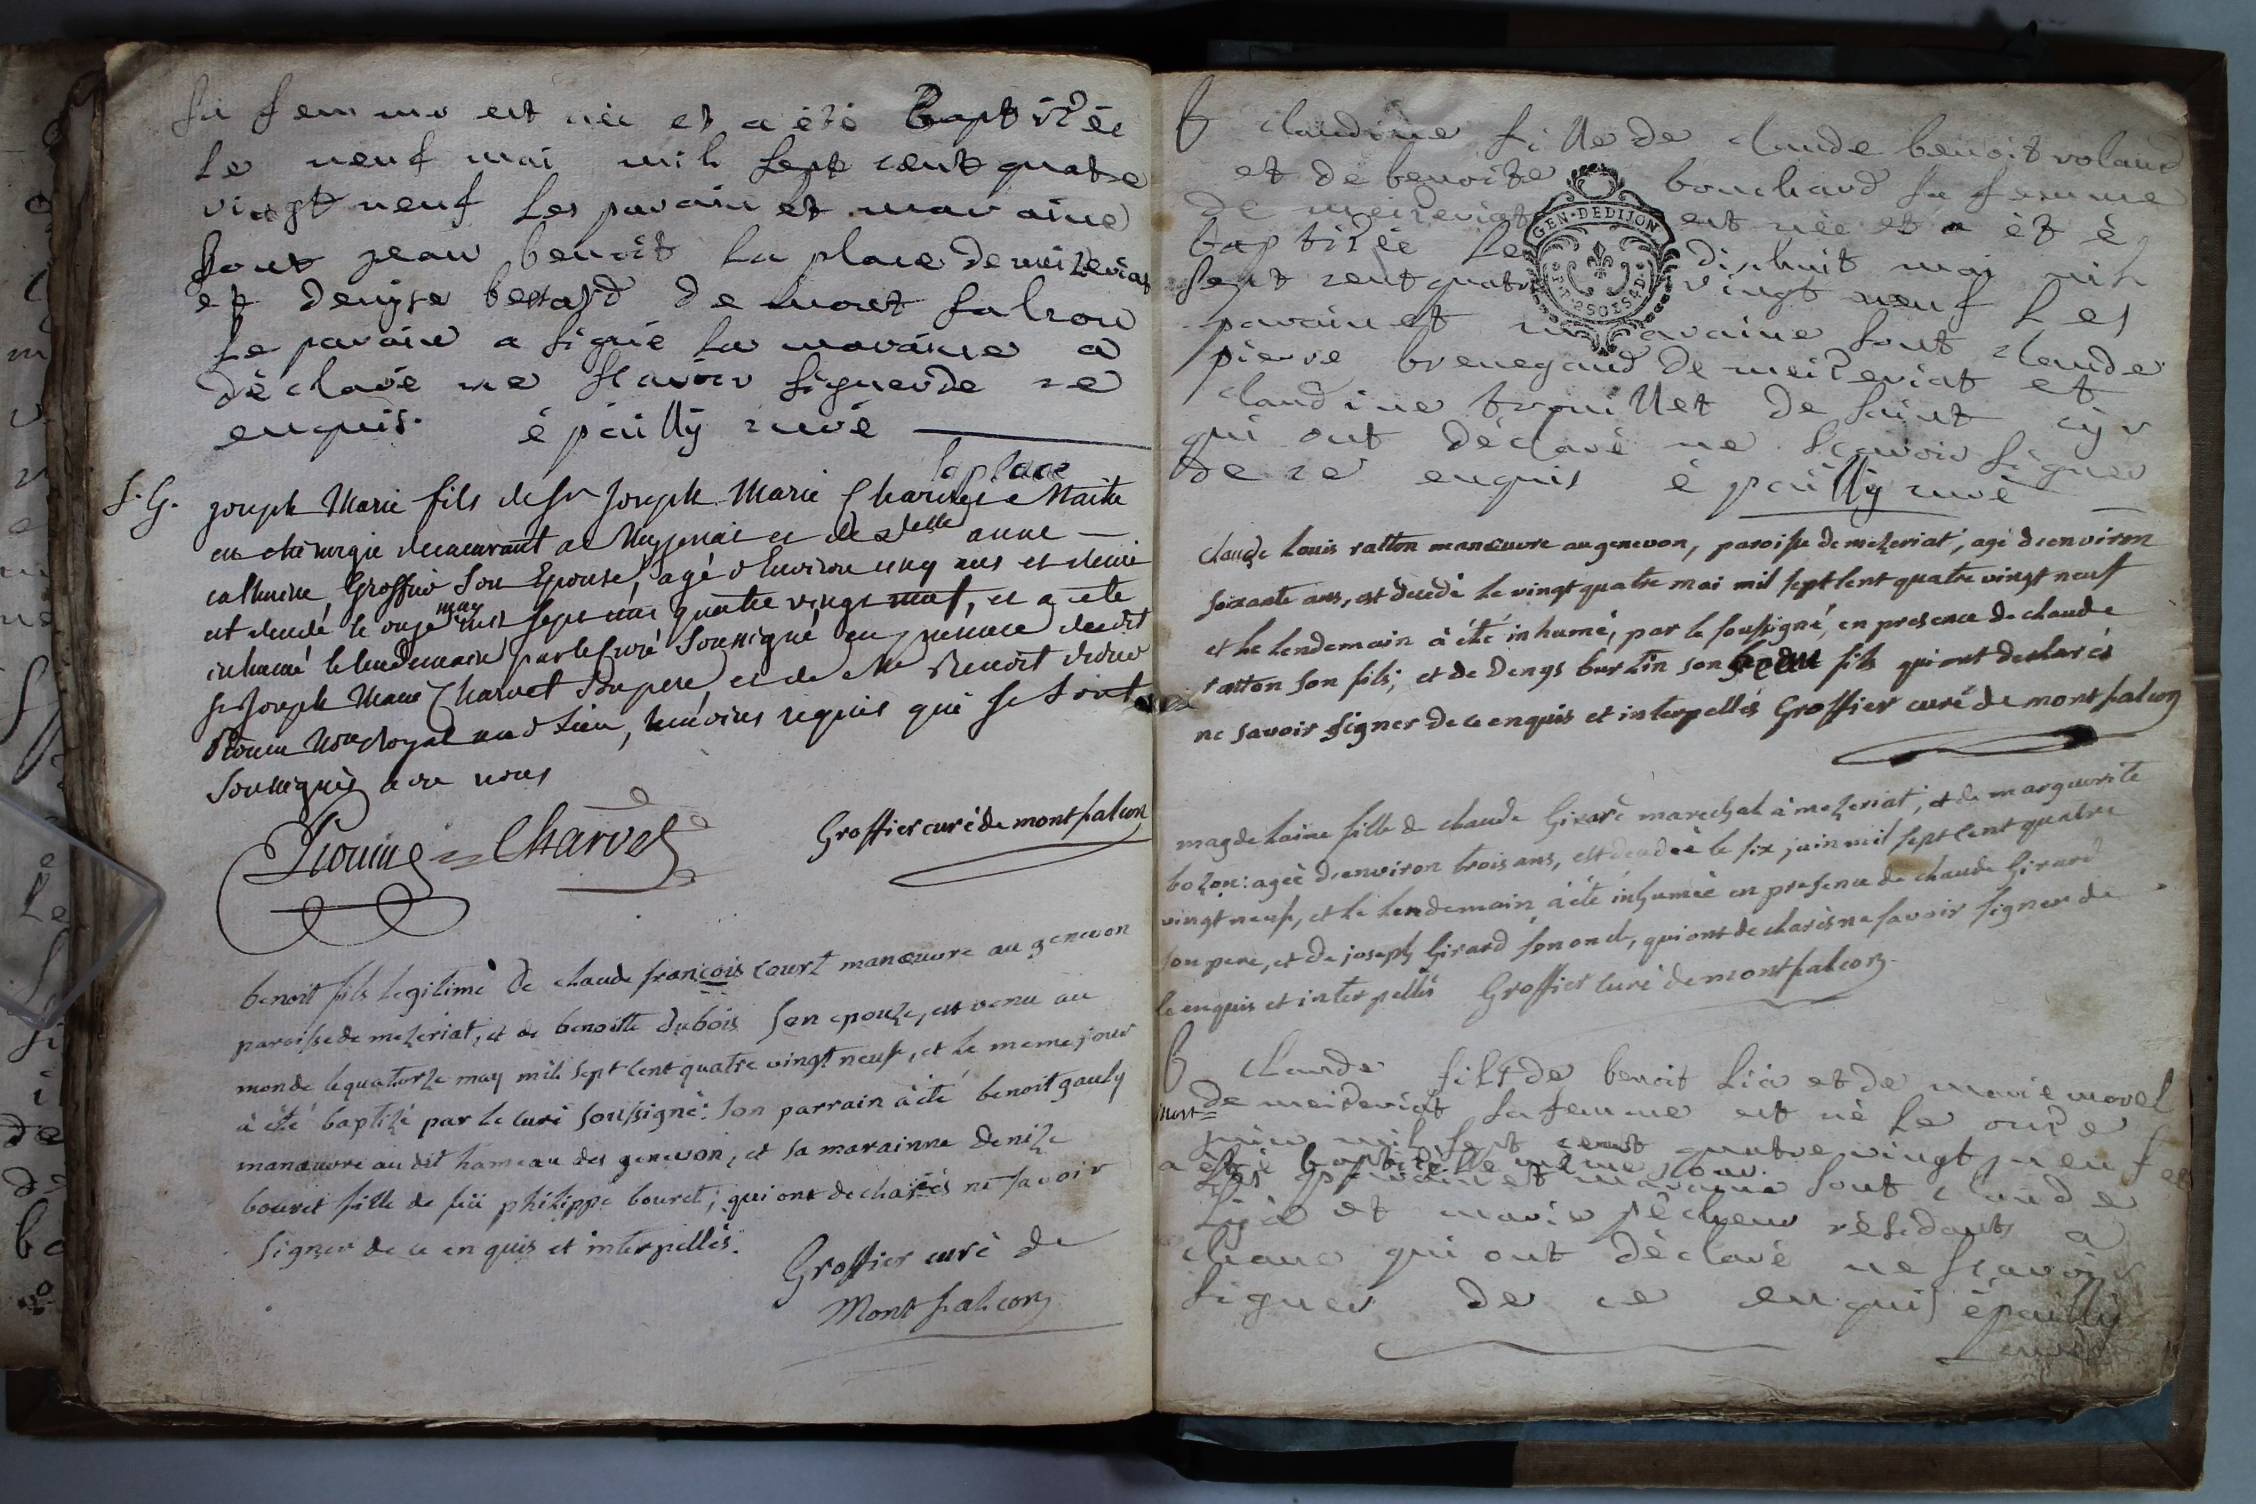 sa femme est née et a été baptizée
le neuf mai mil sept cent quatre
vingt neuf les parain et maraine
sont jean benoit la place de meizeriat
et denyse bessard de mont falcon
le parain a signé la maraine a
déclaré ne scavoir signer de ce
enquis. épailly curé
laplace
S. G. joseph Marie fils de sr Joseph Marie Charvet Maitre
en chirurgie demeurant a et de dlle anne
catherine Groffier son Epouse, agé d'Environ cinq ans et demi
est decedé le onze may mil sept cent quatre vingt neuf, et a eté
inhumé le lendemain par le Curé soussigné en presence dudit
sr Joseph Marie Charvet son pere, et de Me Benoit
royal au d lieu, temoins requis qui se sont
soussignés avec nous
Charvet Groffier curé de montfalcon
benoit fils legitime de claude françois court manœuvre au genevon
paroisse de mezeriat, et de benoitte dubois son epouze, est venu au
monde le quatorze may mil sept cent quatre vingt neuf, et le meme jour
à été baptizé par le curé soussigné: son parrain à été benoit gauly
manœuvre au dit hameau des genevon, et sa marainne denize
bouret fille de feü philippe bouret, qui ont declarés ne savoir
signer de ce enquis et interpellés.
Groffier curé de
Montfalcon
B Claudine fille de claude benoit voland
et de benoite bouchard sa femme
de meizeriat est née et a été
GEN. DE DIJON
baptizée le dixhuit mai mil
sept cent quatre vingt neuf les
parain et maraine sont claude
pierre brenegaud de meizeriat et
claudine trouillet de saint cyr
qui ont déclaré ne scavoir signer
de ce enquis épailly curé
Claude Louis ratton manœuvre au genevon, paroisse de mezeriat, agé d'environ
soixante ans, est decedé le vingt quatre mai mil sept cent quatre vingt neuf
et le lendemain à été inhumé, par le soussigné, en presence de claude
ratton son fils, et de Denys burtin son beau fils qui ont declarés
ne savoir signer de ce enquis et interpellés Groffier curé de montfalcon
magdelaine fille de claude Girard marechal à mezeriat, et de marguerite
bozon: agée d'environ trois ans, est decedée le six juin mil sept cent quatre
vingt neuf, et le lendemain à été inhumée en presence de claude Girard
son pere, et de joseph Girard son oncl, qui ont declarés ne savoir signer de
ce enquis et interpellés Groffier curé de montfalcon.
B Claude fils de benoit Lia et de marie morel
mort de meizeriat sa femme est né le onze
juin mil sept cent quatre vingt neuf et
a été baptizé le même jour.
les parain et maraine sont claude
et marie pêcheur résidants a
chanc qui ont déclaré ne scavoir
signer de ce enquis épailly
curé